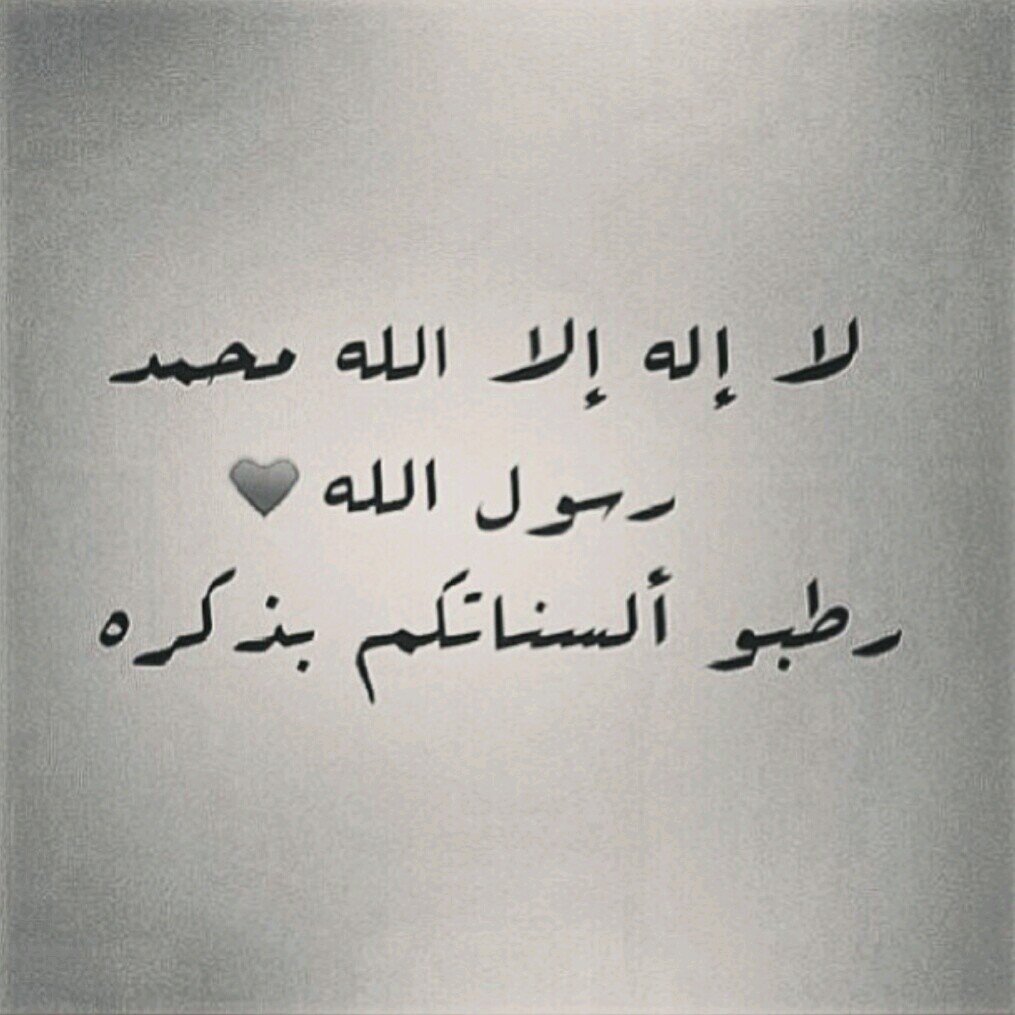 لا إله إلا الله محمد
رسول الله🖤
رطبو ألسناتكم بذكره